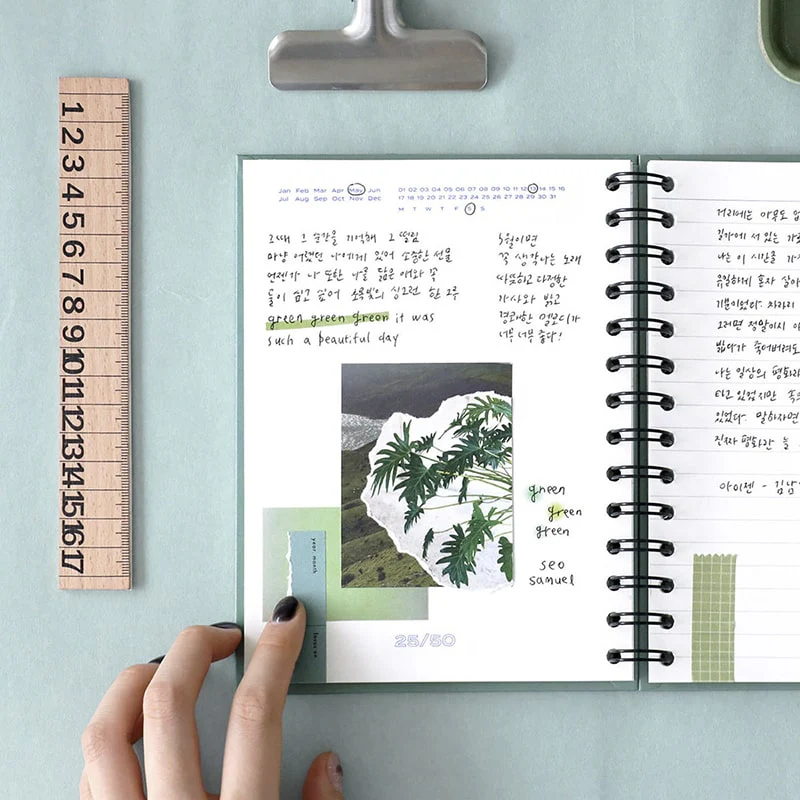 1 2 3 4 5 6 7 8 9 10 11 12 13 14 15 16 17
Jan Feb Mar Apr May Jun
Jul Aug Sep Oct Nov Dec
01 02 03 04 05 06 07 08 09 10 11 12 13 14 15 16
17 18 19 20 21 22 23 24 25 26 27 28 29 30 31
M T W T F S S
그때 그 순간을 기억해 그 떨림
마냥 어렸던 나에게 있어 소중한 선물
언젠가 나 또한 나를 닮은 애와 꼭
둘이 쉬고 싶어 초록빛의 싱그런 한 그루
green green green it was
such a beautiful day
5월이면
꼭 생각나는 노래
따뜻하고 다정한
가사와 밝고
경쾌한 멜로디가
너무너무 좋다!
green
green
green
seo
samuel
year. month
focus on
25/50
거리에는 아무도
길가에 서 있는
나는 이 시간을
유일하게 혼자
기분이었다. 차라리
그러면 정말이지
밟다가 죽어버려도
나는 일상의 평화라
타고 있었지만
있었다. 말하자면
진짜 평화란 늘
아이젠 -